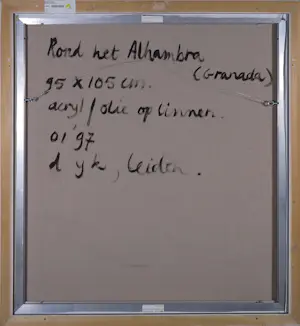 Rond het Alhambra
(Granada)
95 x 105 cm.
acryl / olie op linnen.
01 '97
d y k, Leiden.